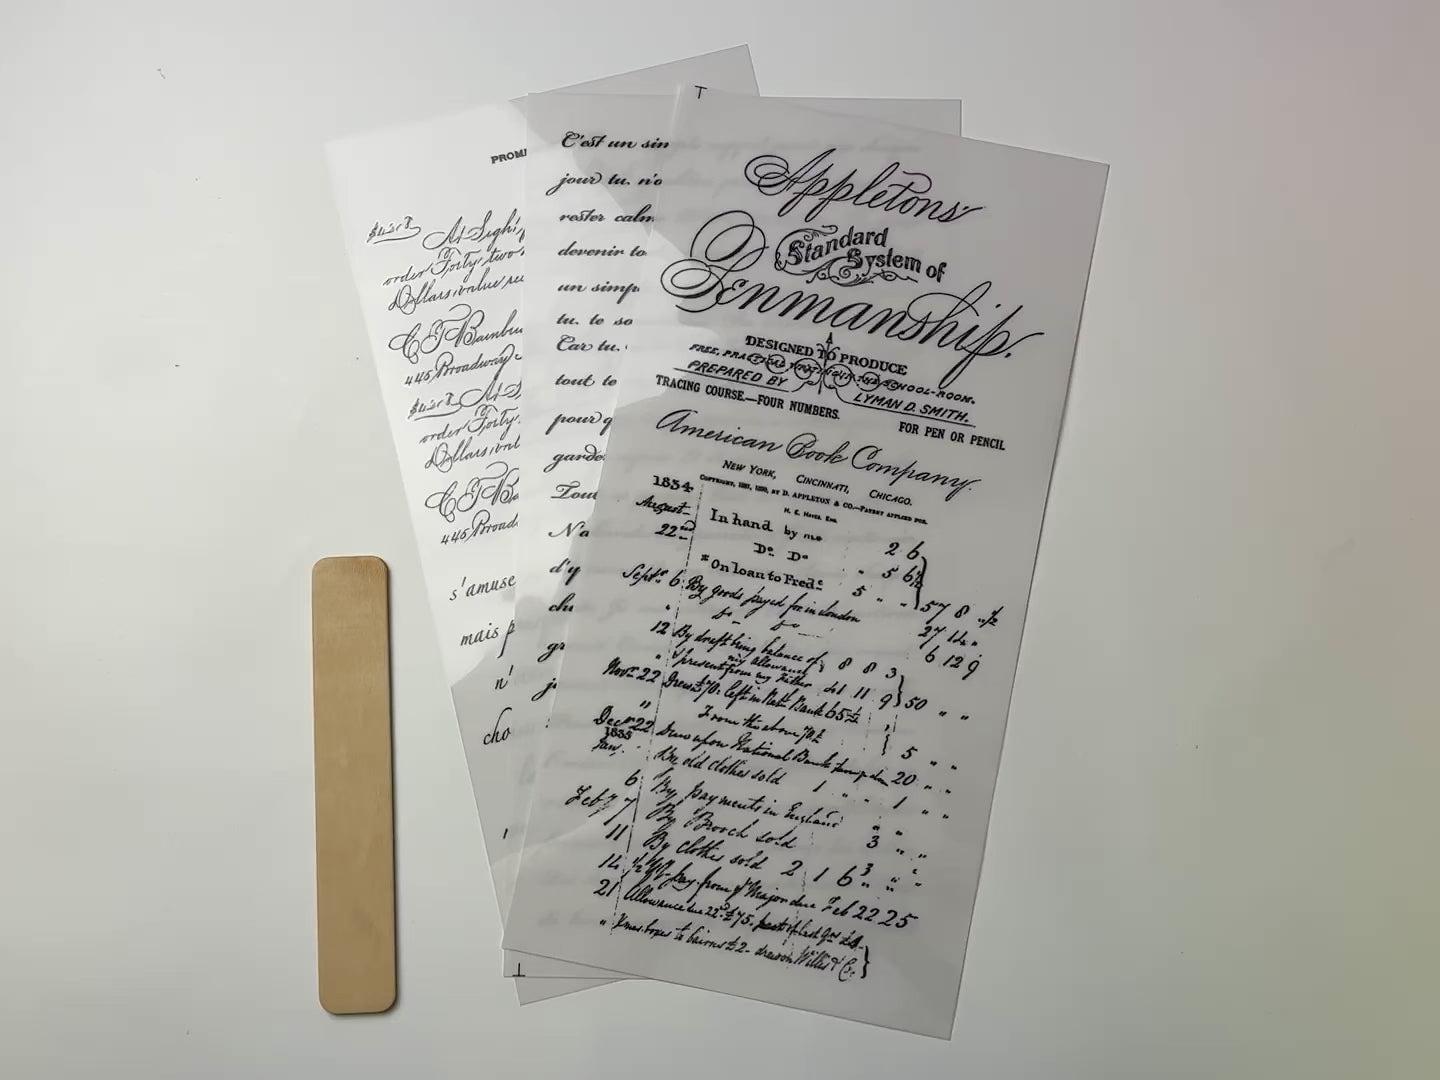 PROM
At Sigh
order Forty two
Dollars value re
C T Bainbri
445 Broadway
At S
order Forty
Dollars val
C T Ba
445 Broad
s'amuse
mais p
n'
cho
C'est un sin
jour tu. n'o
rester calm
devenir to
un simp
tu. te so
Car tu.
tout te
pour q
garde
Tout
Na
d'y
chi
gr
j
T
Appletons'
Standard
System of
Penmanship.
DESIGNED TO PRODUCE
FREE, PRACTICAL WRITING IN THE SCHOOL-ROOM.
PREPARED BY LYMAN D. SMITH.
TRACING COURSE.—FOUR NUMBERS. FOR PEN OR PENCIL
American Book Company.
NEW YORK, CINCINNATI, CHICAGO.
COPYRIGHT, 1887, 1890, BY D. APPLETON & CO.—PATENT APPLIED FOR.
1834
August 22nd In hand by me 2 6
Do Do " 5 6½
*On loan to Fredc 5 " " 57 8 "½
Septr 6 By goods payed for in London 27 14 "
" Do Do 6 12 9
12 By draft being balance of my allowance 8 8 3
" & present from my Father 41 11 9 50 " "
Novr 22 Drew £70: left in Natl Bank 65
" From this above 70£ 5 " "
Decr 22 Drew upon National Bank 20 " "
1835
Jany. By old clothes sold 1 " " 1 " "
6 By payments in England " "
Feby 7 By Brooch sold 3 " "
11 By clothes sold 2 1 6 3 " "
14 ½ Yr pay from Major due Feb 22 25
21 Allowance due 22d £75. part of last
" Xmas boxes to bairns £2- drew on Willis & Co.
T